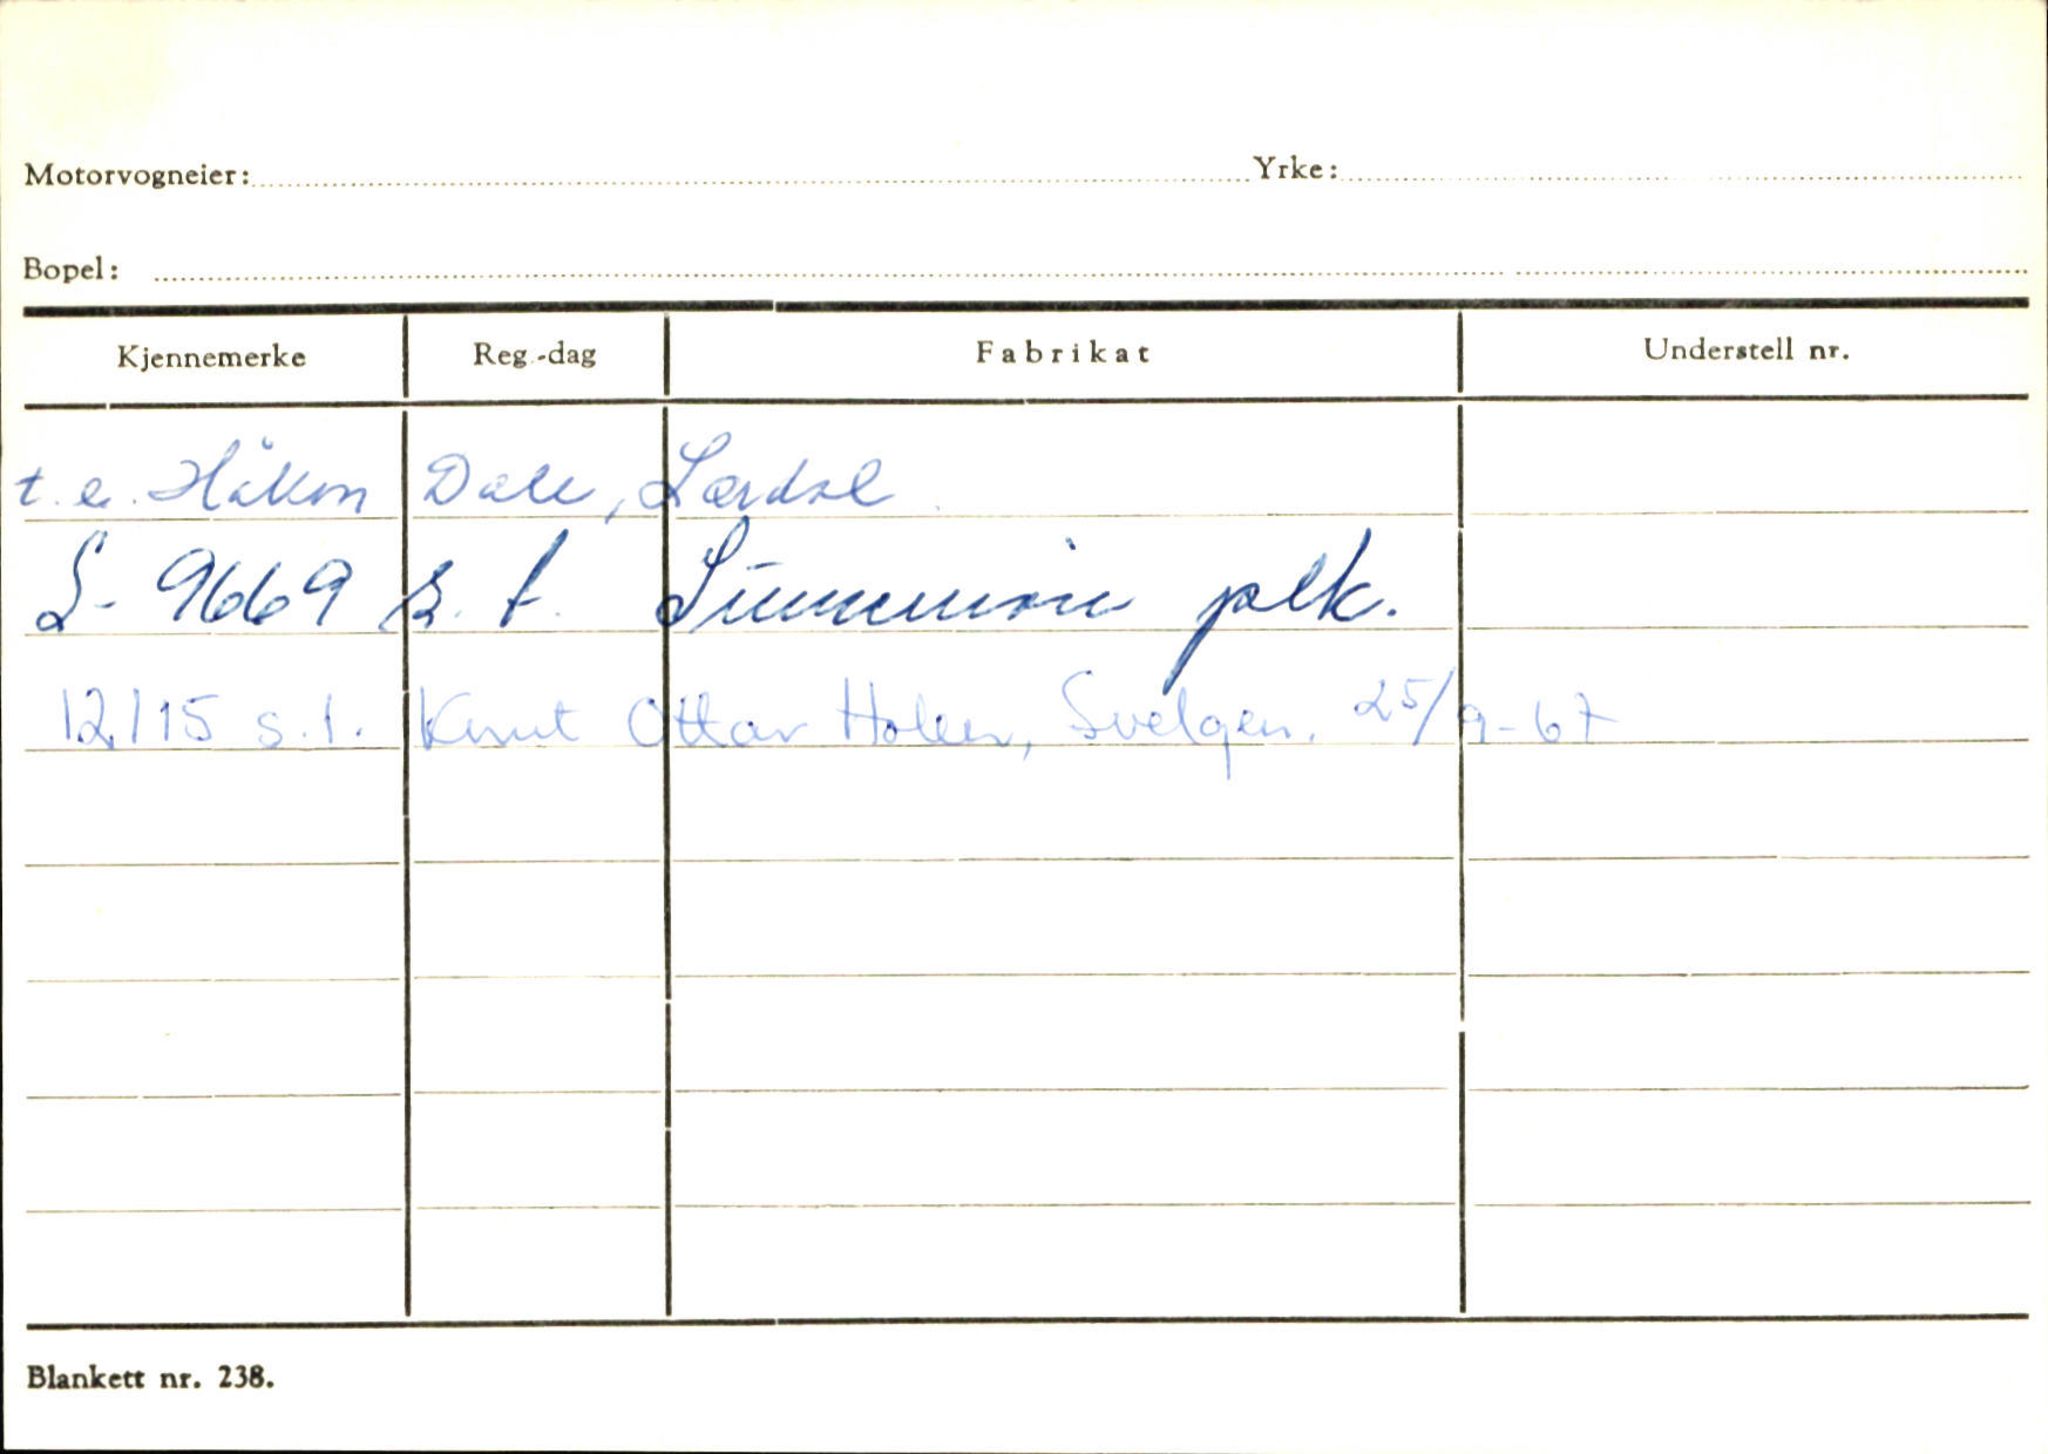 Motorvogneier: Yrke:
Bopel:
Kjennemerke Reg.-dag Fabrikat Understell nr.
t.e. Håkon Dale, Lærdal
S-9669 s. t. plk.
12115 s.t. Knut Ottar Svelgen. 25/9-67
Blankett nr. 238.